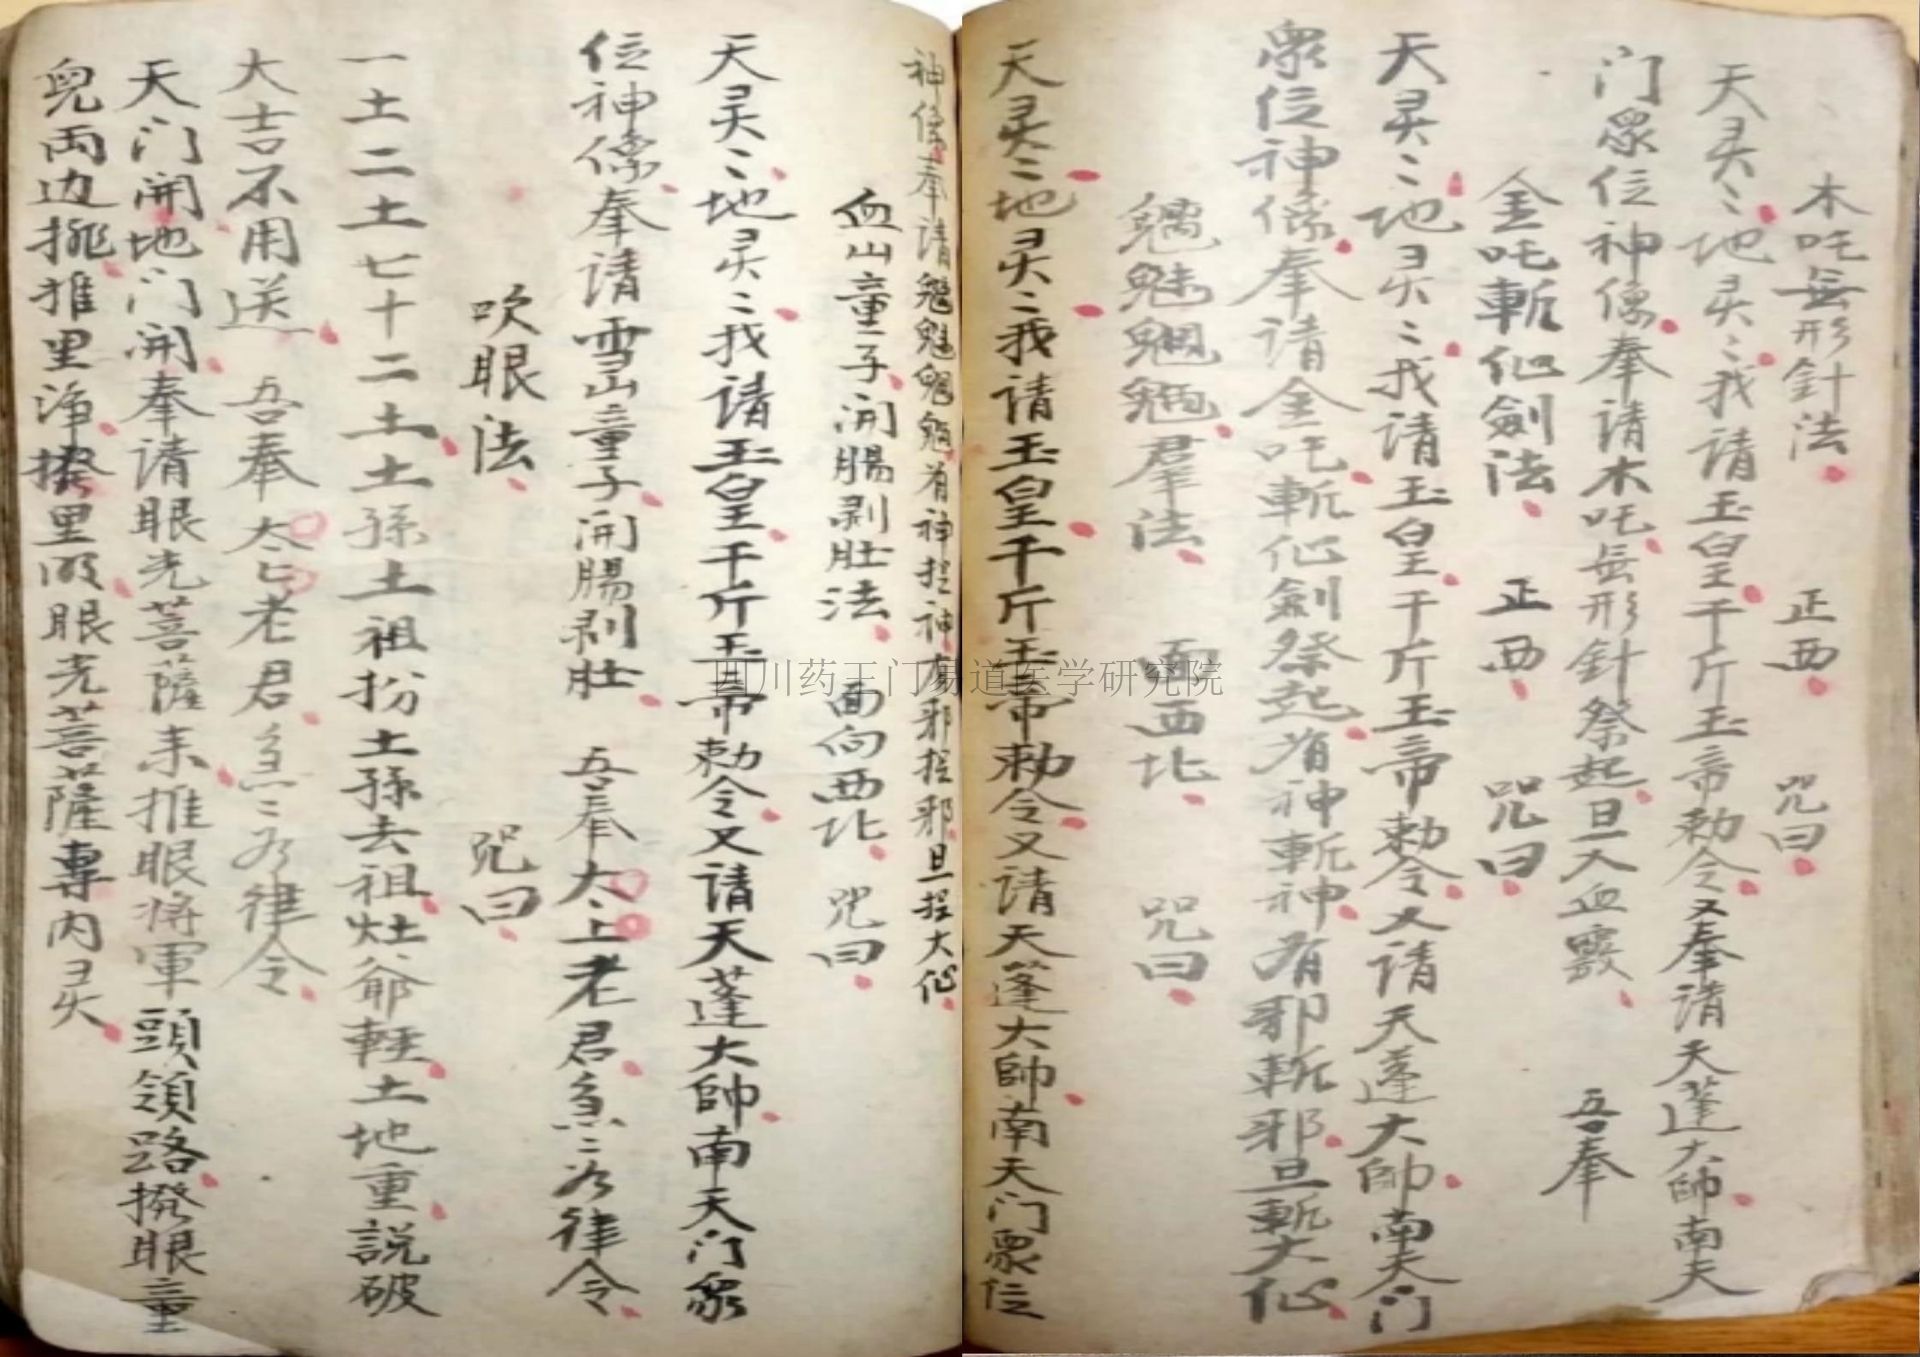 木吒無形針法 正西 咒曰
天灵〻地灵〻我请玉皇千斤玉帝勅令又奉请天蓬大帥南天
门眾位神像奉请木吒無形針祭起旦入血竅 吾奉
金吒斬仙劍法 正西 咒曰
天灵〻地灵〻我请玉皇千斤玉帝勅令又请天蓬大帥南天门
眾位神像奉请金吒斬仙劍祭起有神斬神有邪斬邪旦斬大仙
魑魅魍魎群法 面西北 咒曰
天灵〻地灵〻我请玉皇千斤玉帝勅令又请天蓬大帥南天门眾位
神像奉请魑魅魍魎有神捉神有邪捉邪旦捉大仙
血山童子開腸剥肚法 面向西北 咒曰
天灵〻地灵〻我请玉皇千斤玉帝勅令又请天蓬大帥南天门眾
位神像奉请雪山童子開腸剥肚 吾奉太上老君急〻为律令
吹眼法 咒曰
一土二土七十二土土孫土祖扮土孫去祖灶爺軽土地重説破
大吉不用送 吾奉太上老君急〻为律令
天门開地门開奉请眼光菩薩来推眼将軍頭領路撥眼童
兒両边挑推里净撥里明眼光菩薩専内灵
四川药王门易道医学研究院